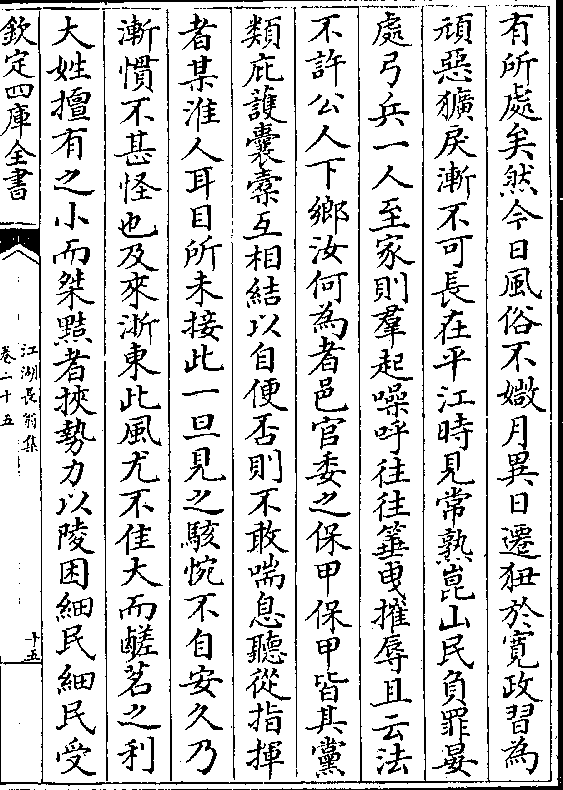 有所處矣然今日風俗不媺月異日遷狃於寛政習為
頑惡獷戾漸不可長在平江時見常熟崑山民負罪晏
處弓兵一人至家則羣起噪呼往往箠曵摧辱且云法
不許公人下鄉汝何為者邑官委之保甲保甲皆其黨
類庇護囊橐互相結以自便否則不敢喘息聽從指揮
者某淮人耳目所未接此一旦見之駭惋不自安久乃
漸慣不甚怪也及來浙東此風尤不佳大而鹺茗之利
大姓擅有之小而桀黠者挾勢力以陵困細民細民受
欽定四庫全書
江湖長翁集
卷二十五
十五